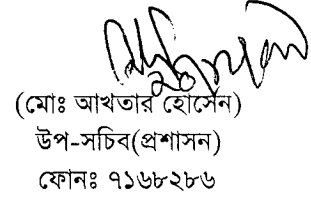 (মোঃ আখতার হোসেন)
উপ-সচিব(প্রশাসন)
ফোনঃ ৭১৬৮২৮৬